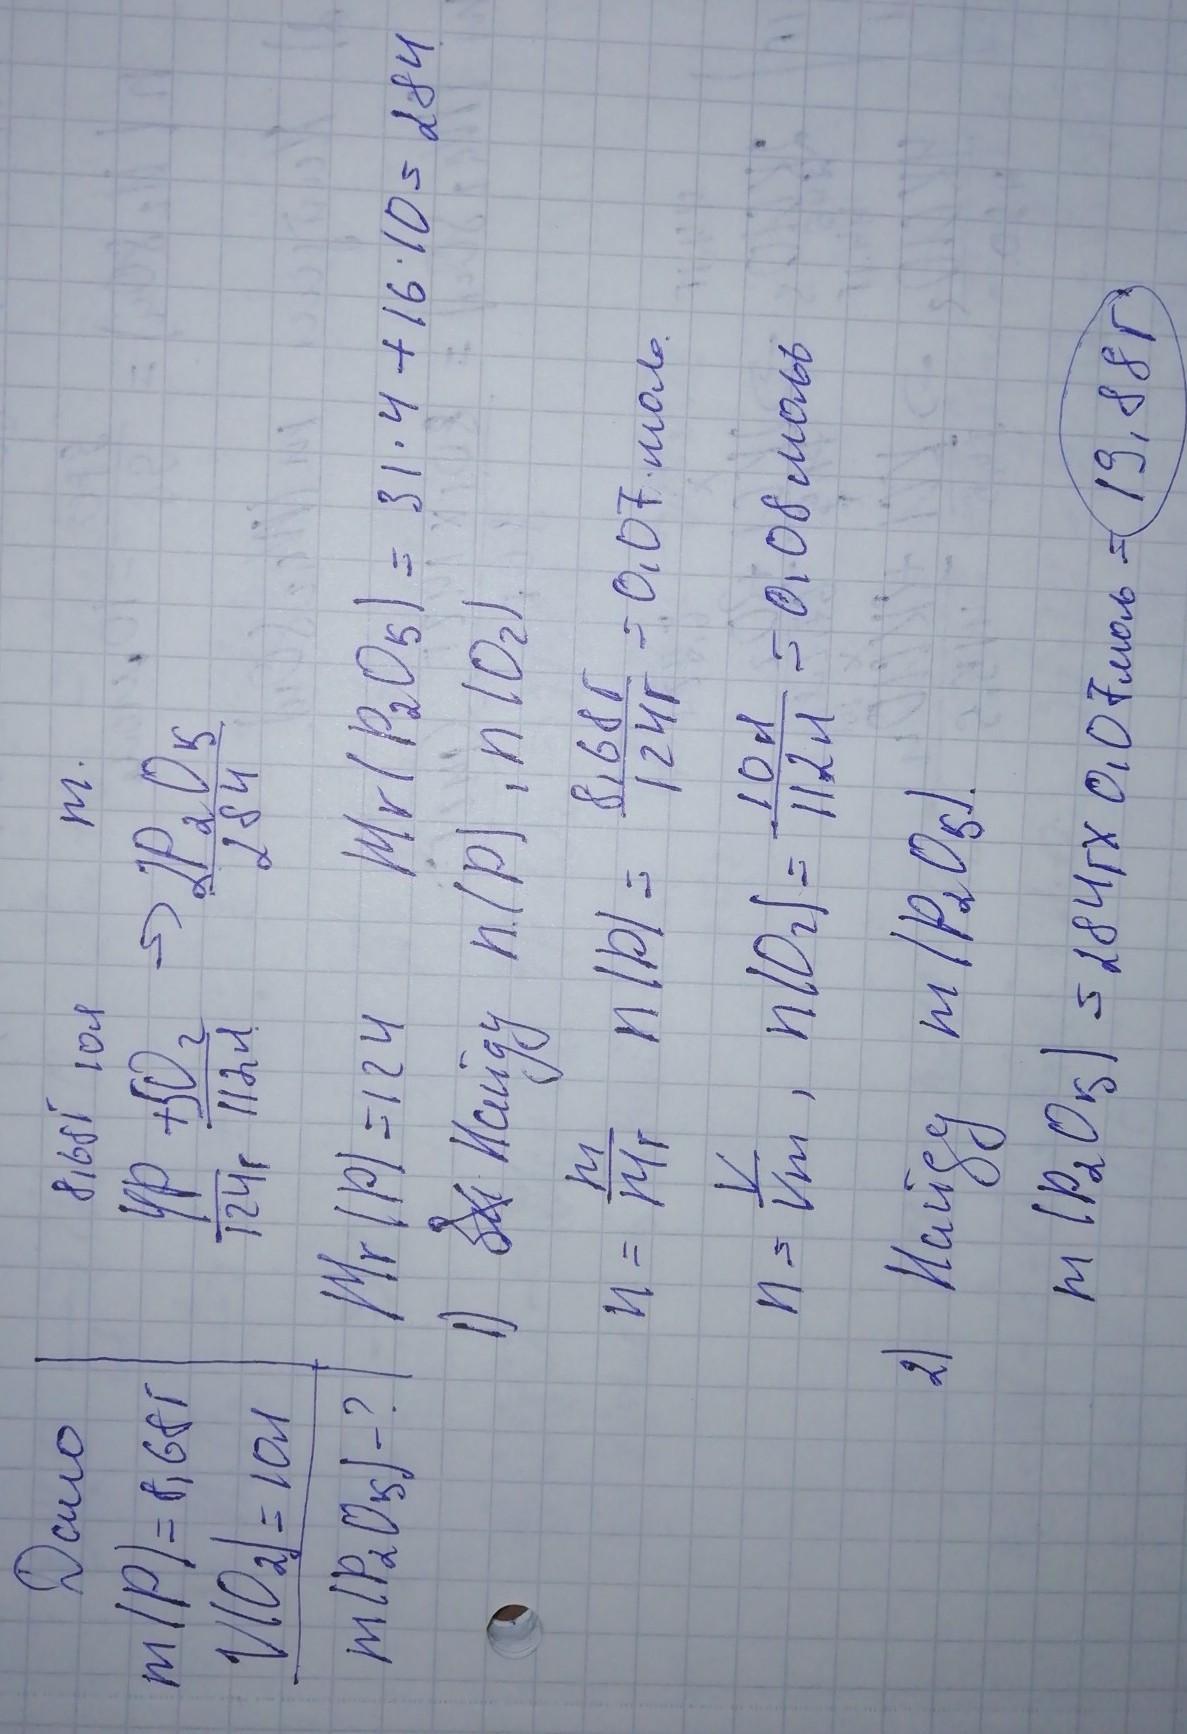 Дано
m(P)=8,68г
V(O2)=10л
m(P2O5)-?
8,68г 10л m.
4P +5O2 => 2P2O5
124г 112л 284
Mr(P)=124 Mr(P2O5) = 31·4+16·10=284
1) Найду n(P), n(O2)
n = m/Mr n(P) = 8,68г/124г = 0,07 моль.
n = V/Vm, n(O2) = 10л/112л = 0,08 моль
2) Найду m(P2O5).
m(P2O5) = 284г x 0,07моль = 19,88г